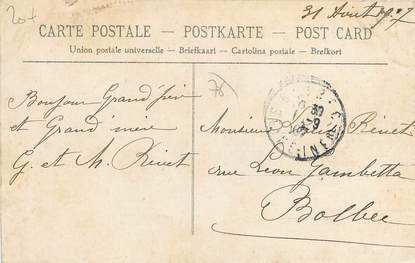 20+
31 Août 1907
CARTE POSTALE – POSTKARTE – POST CARD
Union postale universelle – Briefkaart – Cartolina postale – Brefkort
76
Bonjour Grand'père
et Grand'mère
G. et M. Rivet
Monsieur Rivet
rue Léon Gambetta
Bolbec